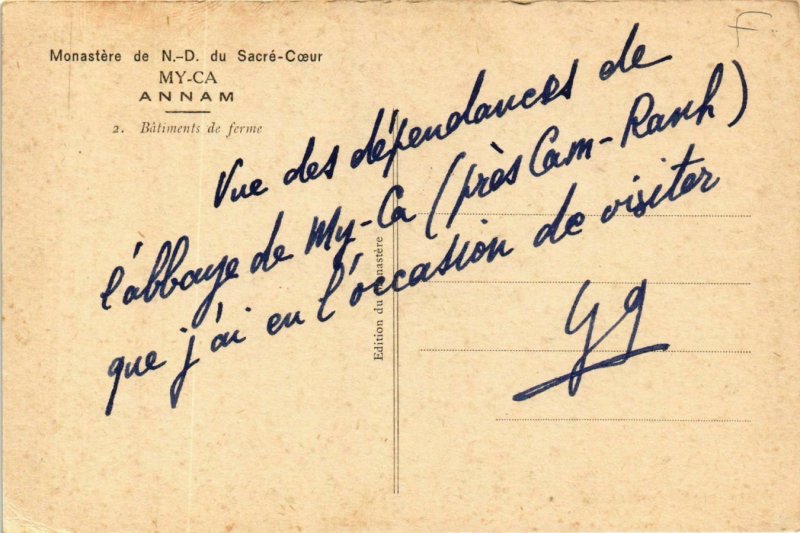 F
Monastère de N.-D. du Sacré-Cœur
MY-CA
ANNAM
2. Bâtiments de ferme
Vue des dépendances de
l'abbaye de My-Ca (près Cam-Ranh)
que j'ai eu l'occasion de visiter
Edition du Monastère